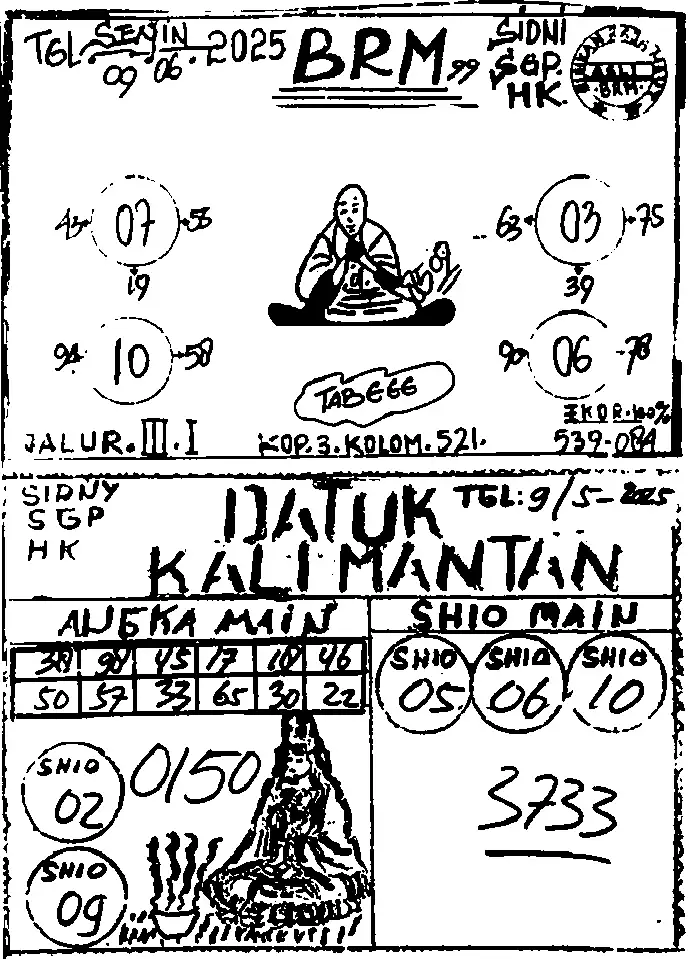 TGL. SENIN 09 . 06 . 2025
BRM 99
SIDNI
SGP.
HK.
ASLI
BRM
43 07 58
19
63 03 75
39
94 10 58
90 06 78
TABEEE
EKOR.100%
JALUR. III . I
KOP. 3. KOLOM. 521.
539-084
SIDNY
SGP
HK
DATUK
KALIMANTAN
TGL: 9/5-2025
ANGKA MAIN
SHIO MAIN
38 98 45 17 18 46
50 57 33 65 30 22
SHIO
05
SHIO
06
SHIO
10
SHIO
02
0150
3733
SHIO
09